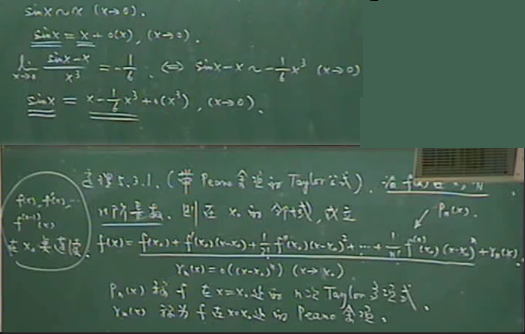 sinx~x (x→0).
sinx = x + o(x), (x→0).
lim x→0 (sinx-x)/x³ = -1/6. ⇔ sinx-x ~ -1/6 x³ (x→0)
sinx = x - 1/6 x³ + o(x³), (x→0).
定理5.3.1. (带Peano余项的Taylor公式). 设f(x)在x₀有
n阶导数, 则在x₀的邻域, 成立
Pₙ(x)
f(x), f'(x), ...
f⁽ⁿ⁻¹⁾(x)
在x₀要连续.
f(x) = f(x₀) + f'(x₀)(x-x₀) + 1/2! f''(x₀)(x-x₀)² + ... + 1/n! f⁽ⁿ⁾(x₀)(x-x₀)ⁿ + rₙ(x).
rₙ(x) = o((x-x₀)ⁿ) (x→x₀)
Pₙ(x) 称 f 在x=x₀处的 n次Taylor多项式.
rₙ(x) 称为f在x=x₀处的 Peano余项.